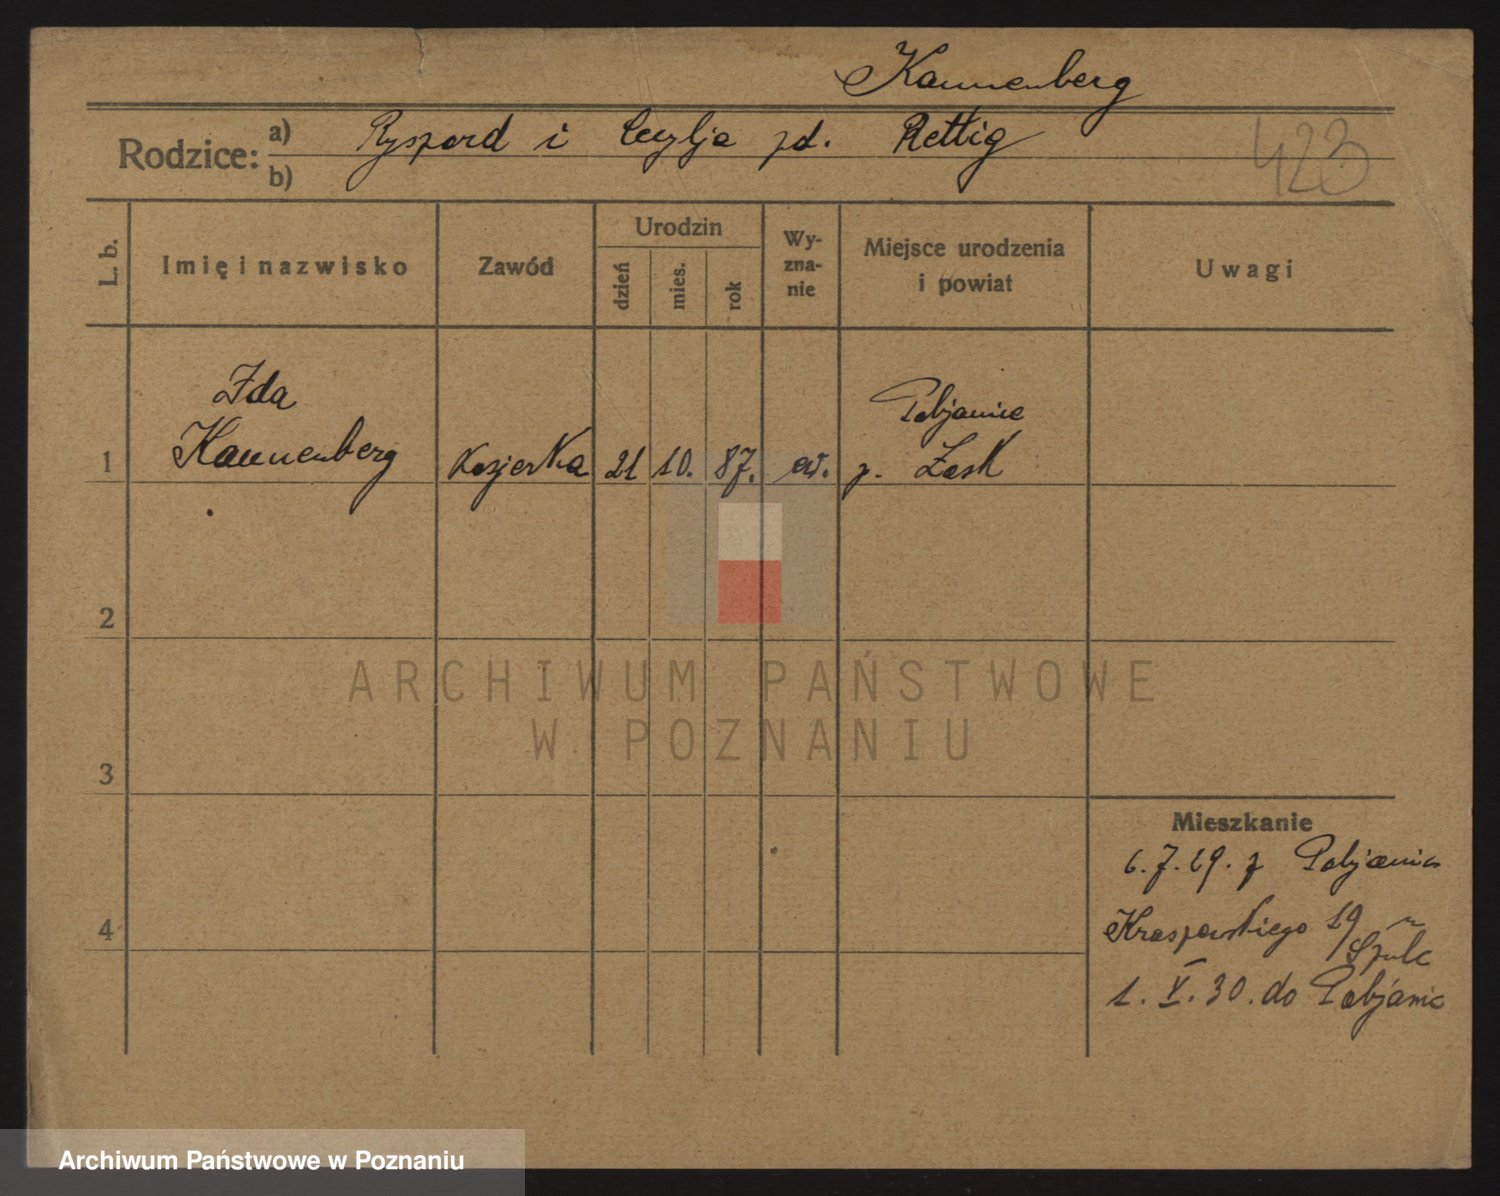 Kannenberg
Rodzice: a) Ryszard i Cecylja zd. Rettig
b)
423
L. b.
Imię i nazwisko
Zawód
Urodzin
dzień
mies.
rok
Wy-
zna-
nie
Miejsce urodzenia
i powiat
Uwagi
Ida
1 Kannenberg
kasjerka 21 10. 87. ew.
Pabjanice
p. Łask
2
3
4
Mieszkanie
6.7.29. z Pabjanic
Kraszewskiego 19
1. V. 30. do Pabjanic
ARCHIWUM PAŃSTWOWE
W POZNANIU
Archiwum Państwowe w Poznaniu